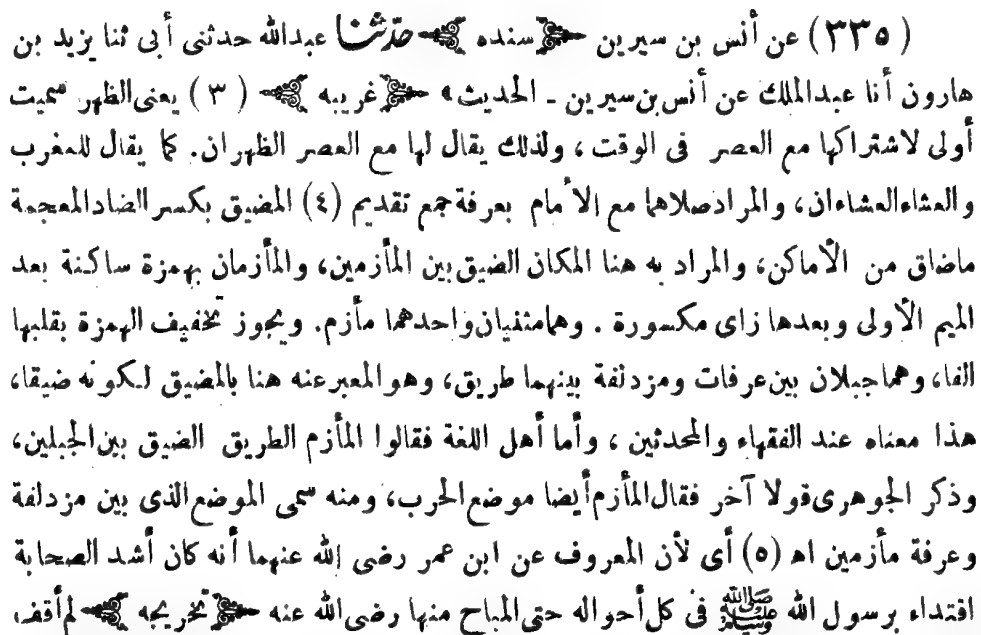 (٣٣٥) عن أنس بن سيرين ﴿سنده﴾ حدثنا عبدالله حدثنى أبى ثنا يزيد بن
هارون أنا عبدالملك عن أنس بن سيرين ـ الحديث» ﴿غريبه﴾ (٣) يعنى الظهر سميت
أولى لاشتراكها مع العصر فى الوقت، ولذلك يقال لها مع العصر الظهران. كما يقال للمغرب
والعشاء العشاءان، والمراد صلاهما مع الأمام بعرفة جمع تقديم (٤) المضيق بكسر الضاد المعجمة
ماضاق من الأماكن، والمراد به هنا المكان الضيق بين المأزمين، والمأزمان بهمزة ساكنة بعد
الميم الأولى وبعدها زاى مكسورة . وهما مثنيان واحدهما مأزم. ويجوز تخفيف الهمزة بقلبها
الفا، وهما جبلان بين عرفات ومزدلفة بينهما طريق، وهو المعبر عنه هنا بالمضيق لكونه ضيقا،
هذا معناه عند الفقهاء والمحدثين ، وأما أهل اللغة فقالوا المأزم الطريق الضيق بين الجبلين،
وذكر الجوهرى قولا آخر فقال المأزم أيضا موضع الحرب، ومنه سمى الموضع الذى بين مزدلفة
وعرفة مأزمين اه (٥) أى لأن المعروف عن ابن عمر رضى الله عنهما أنه كان أشد الصحابة
اقتداء برسول الله ﷺ فى كل أحواله حتى المباح منها رضى الله عنه ﴿تخريجه﴾ لم أقف